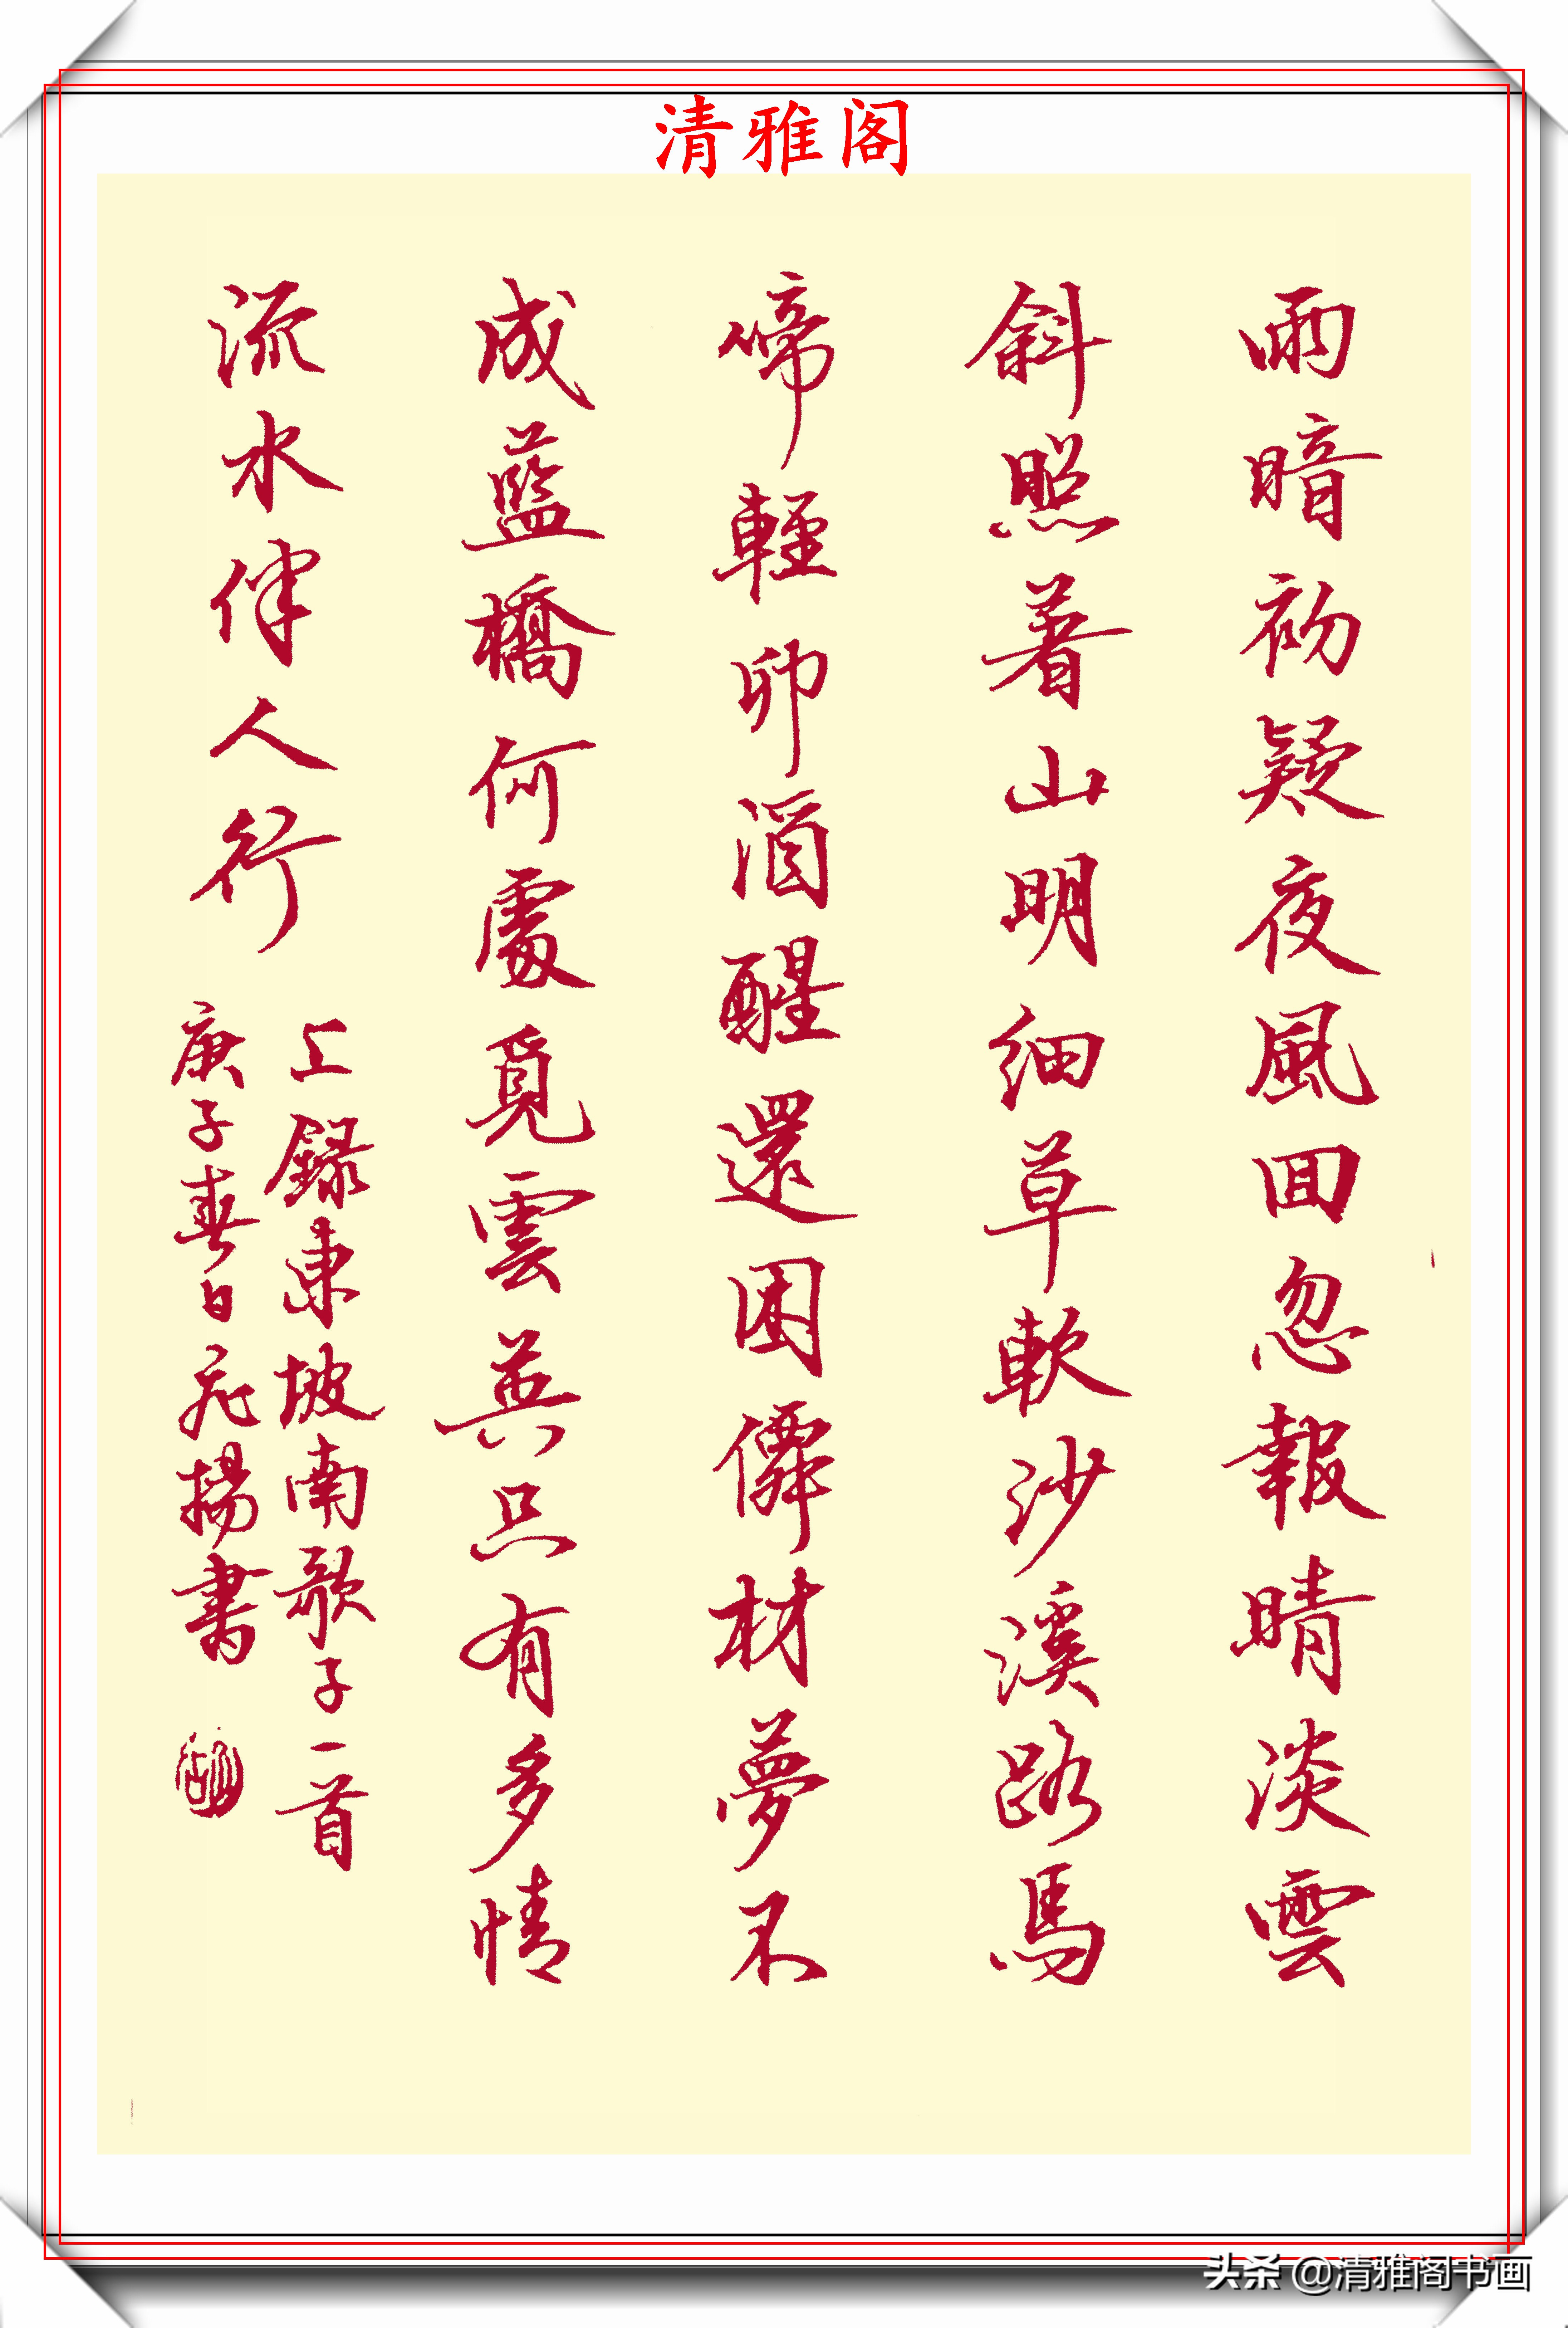 清雅阁
雨暗初疑夜風回忽報晴淡雲
斜照著山明細草軟沙溪路馬
啼輕卯酒醒還困僊材夢不
成藍橋何處覓雲英只有多情
流水伴人行
上録東坡南歌子一首
庚子春日揚書
头条 @清雅阁书画